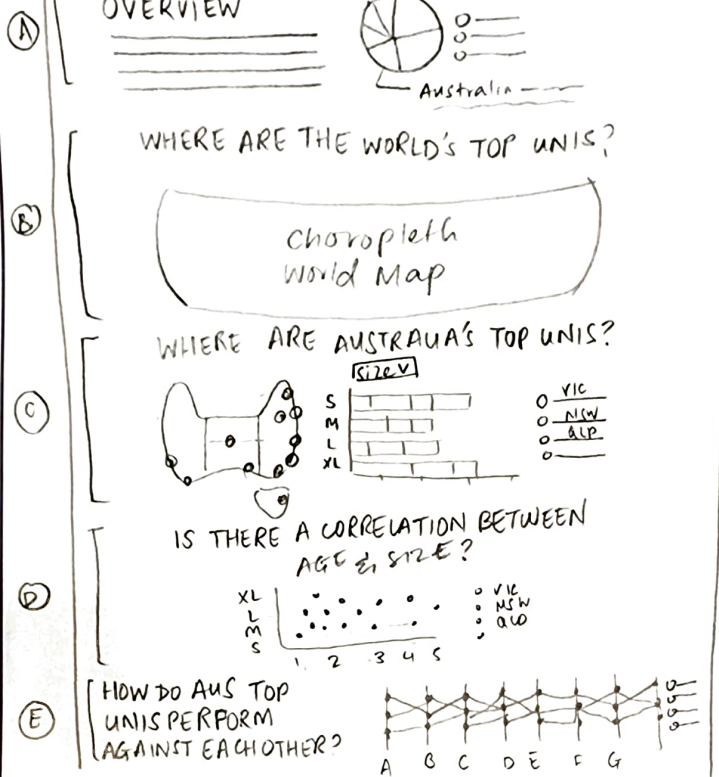 A
OVERVIEW
Australia
B
WHERE ARE THE WORLD'S TOP UNIS?
Choropleth
World Map
C
WHERE ARE AUSTRALIA'S TOP UNIS?
Size v
S
M
L
XL
VIC
NSW
QLD
D
IS THERE A CORRELATION BETWEEN
AGE & SIZE?
XL
L
M
S
1 2 3 4 5
VIC
NSW
QLD
E
HOW DO AUS TOP
UNIS PERFORM
AGAINST EACHOTHER?
A B C D E F G